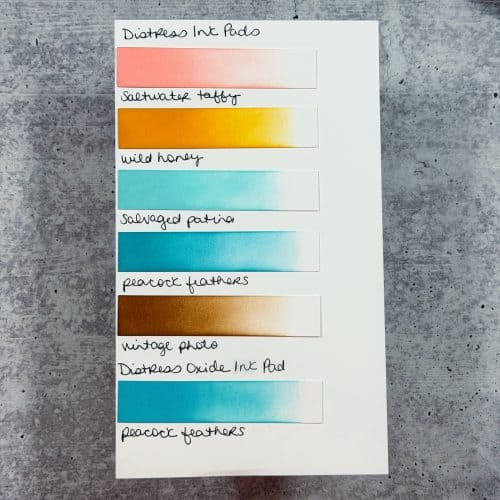 Distress Ink Pads
Saltwater taffy
wild honey
Salvaged patina
peacock feathers
vintage photo
Distress Oxide Ink Pad
peacock feathers